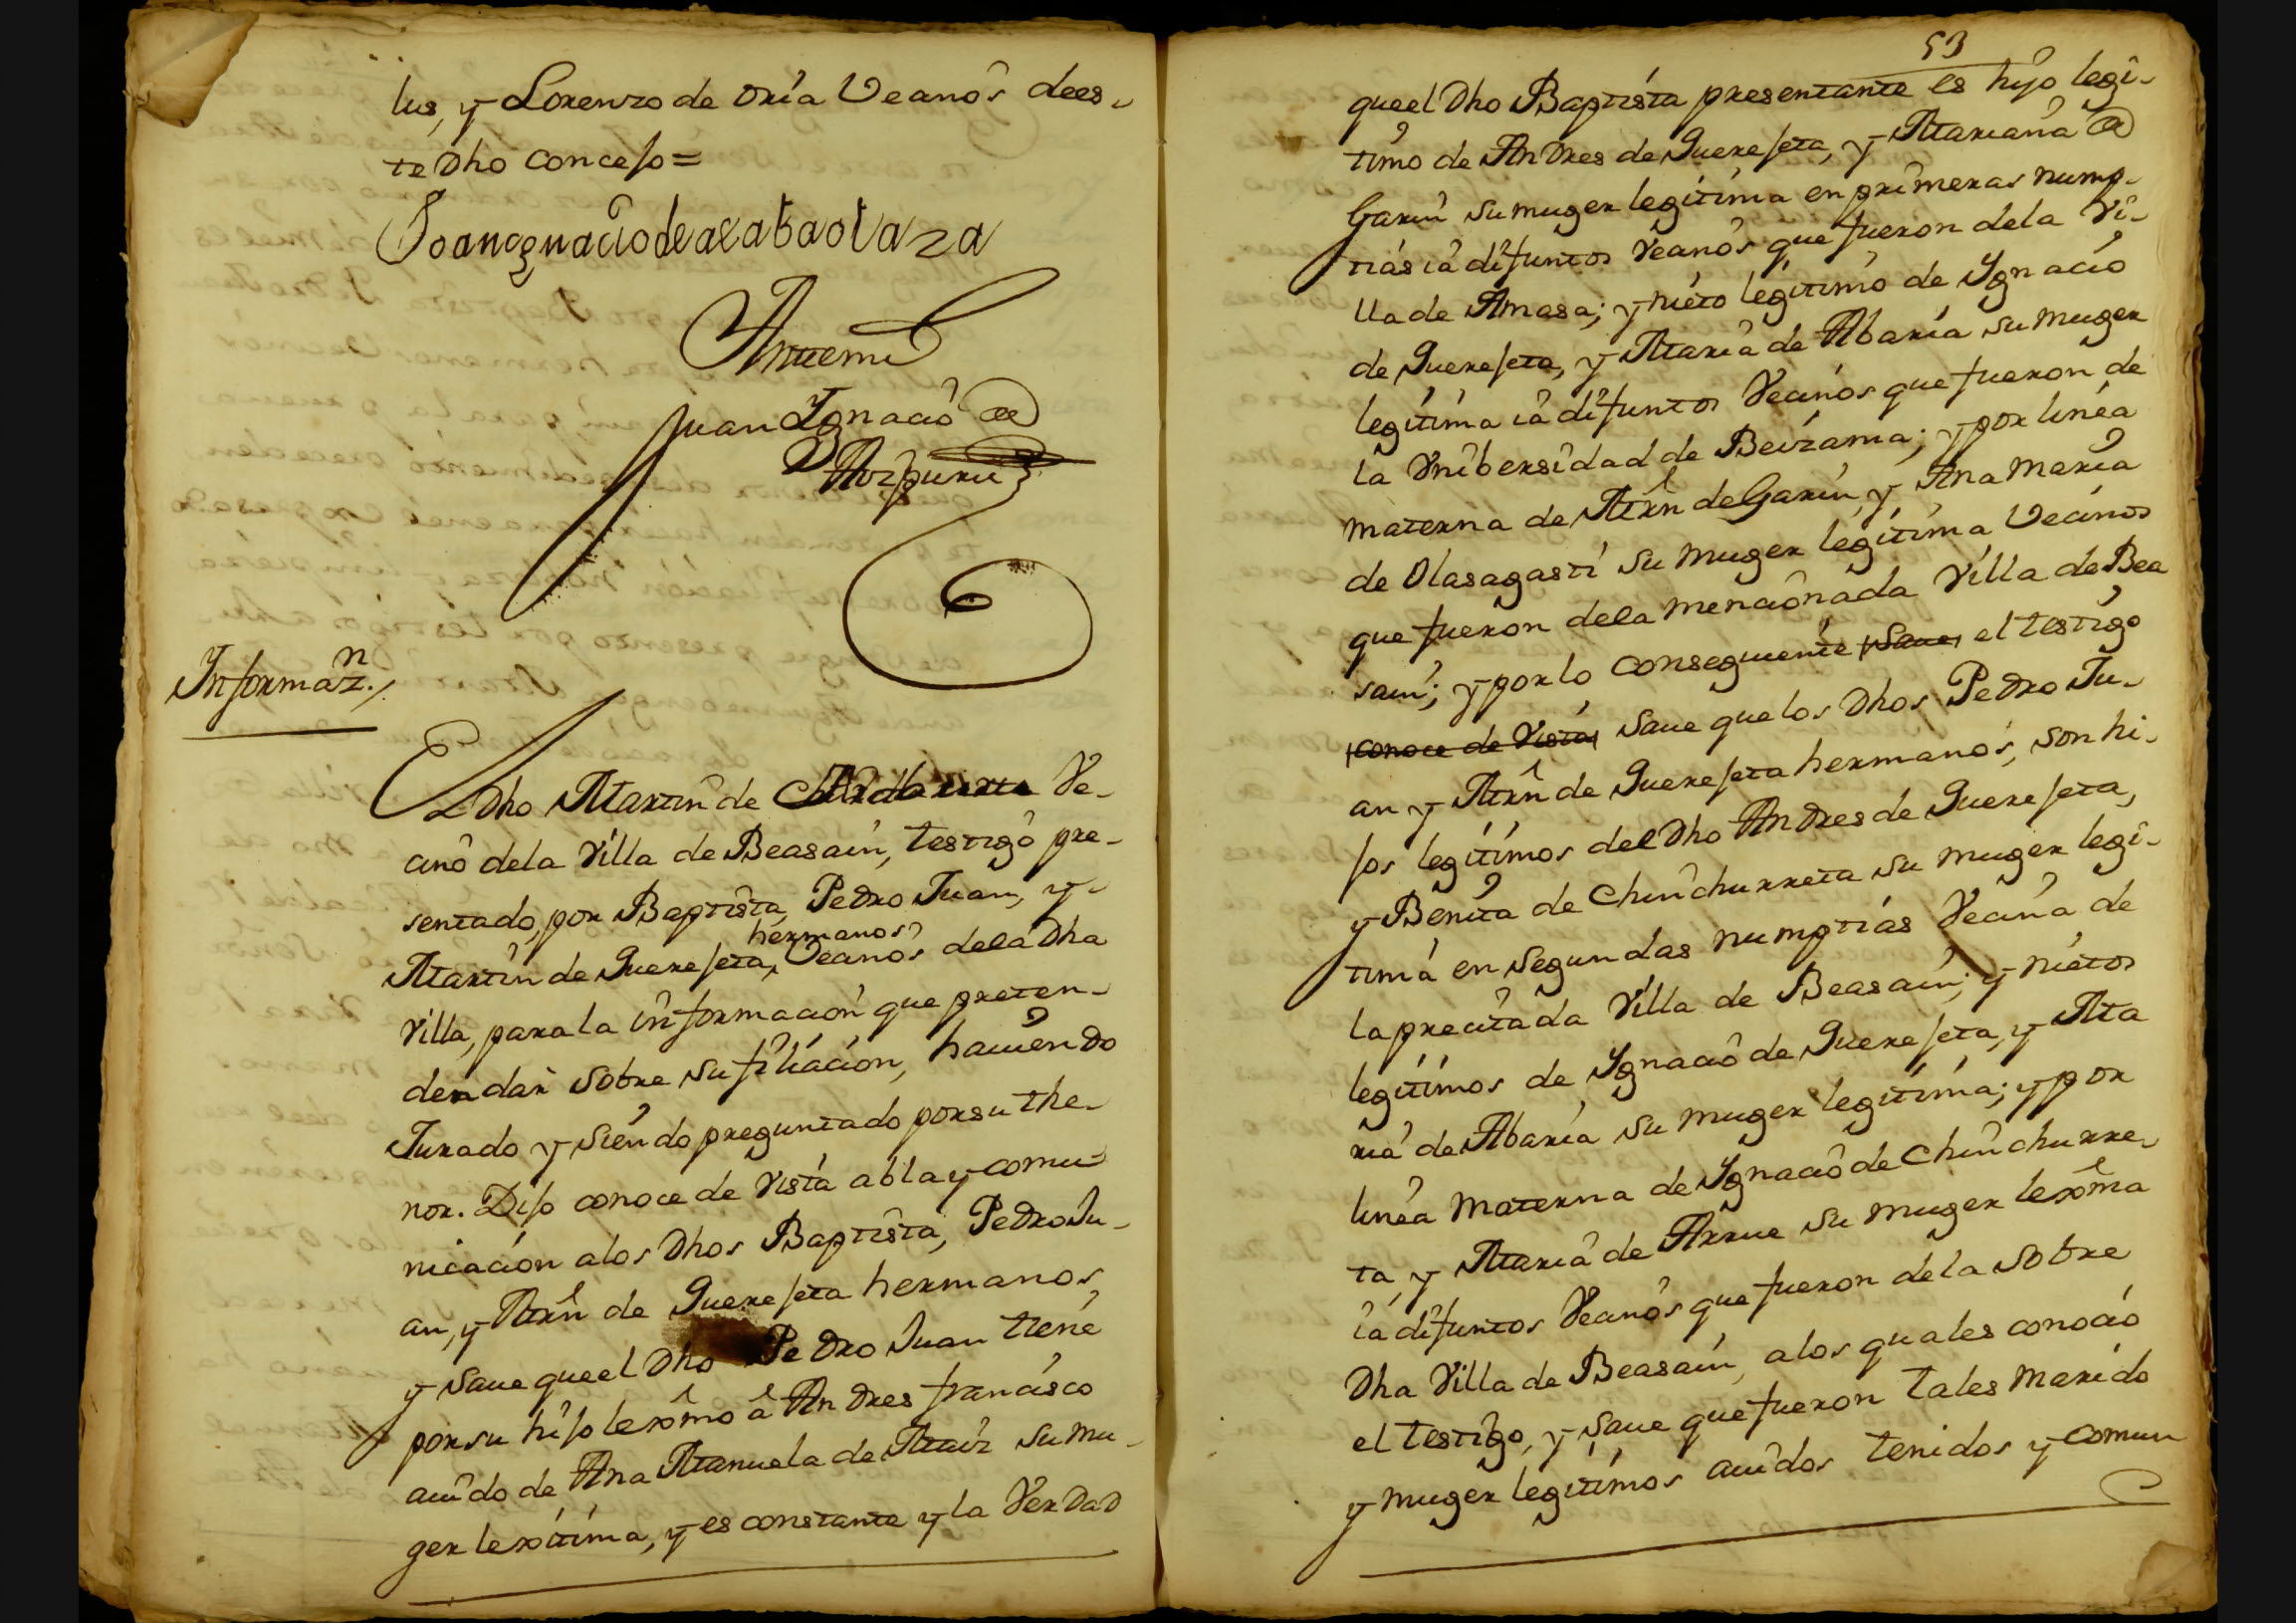 lus, y Lorenzo de oria Veanôs dees-
te Dho Concejo=
Joanygnaciodealabaolaza
Antemi
Juan Ygnacio de
Aozpuru
Informaz.n
El Dho Martin de Ve-
cinô dela Villa de Beasain, testigo pre-
sentado, por Baptista, Pedro Juan, y
hermanos
Martin de Guereseta, Vecinôs dela Dha
Villa, para la informacion que preten-
den dar sobre su filiacion, haviendo
Jurado y siendo preguntado por su the-
nor. Dijo conoce de vista abla y comu-
nicacion alos Dhos Baptista, Pedro Ju-
an, y Mrn de Guereseta hermanos,
y save que el Dho Pedro Juan tiene
por su hijo lexmo â Andres francisco
avido de Ana Manuela de su mu-
ger lexitima, y es constante y la Verdad
53
que el Dho Baptista presentante es hijo legi-
timo de Andres de Guereseta, y Mariana de
Garin su muger legitima en primeras nump-
tias ia difuntos Vecinôs que fueron dela Vi-
lla de Amasa; y nieto legitimo de Ygnacio
de Guereseta, y Maria de Abaria su muger
legitima iâ difuntos Vecinos que fueron de
la Vnibersidad de Beizama; y por linea
materna de Mrn de Garin, y Ana Maria
de Olasagasti su muger legitima Vecinos
que fueron dela mencionada Villa de Bea
sain; y por lo conseguiente save el testigo
conoce de Vista save que los Dhos Pedro Ju-
an y Mrn de Guereseta hermanos, son hi-
jos legitimos del Dho Andres de Guereseta,
y Benita de Chinchurreta su muger legi-
tima en segundas numptias Vecina de
la precitada Villa de Beasain; y nietos
legitimos de Ygnacio de Guereseta, y Ma
ria de Abaria su muger legitima; y por
linea Materna de Ygnaciô de Chinchurre-
ta, y Maria de Arrue su muger lexma
ia difuntos Vecinos que fueron dela sobre
Dha Villa de Beasain, alos quales conocio
el testigo, y save que fueron tales Marido
y muger legitimos avidos tenidos y comun